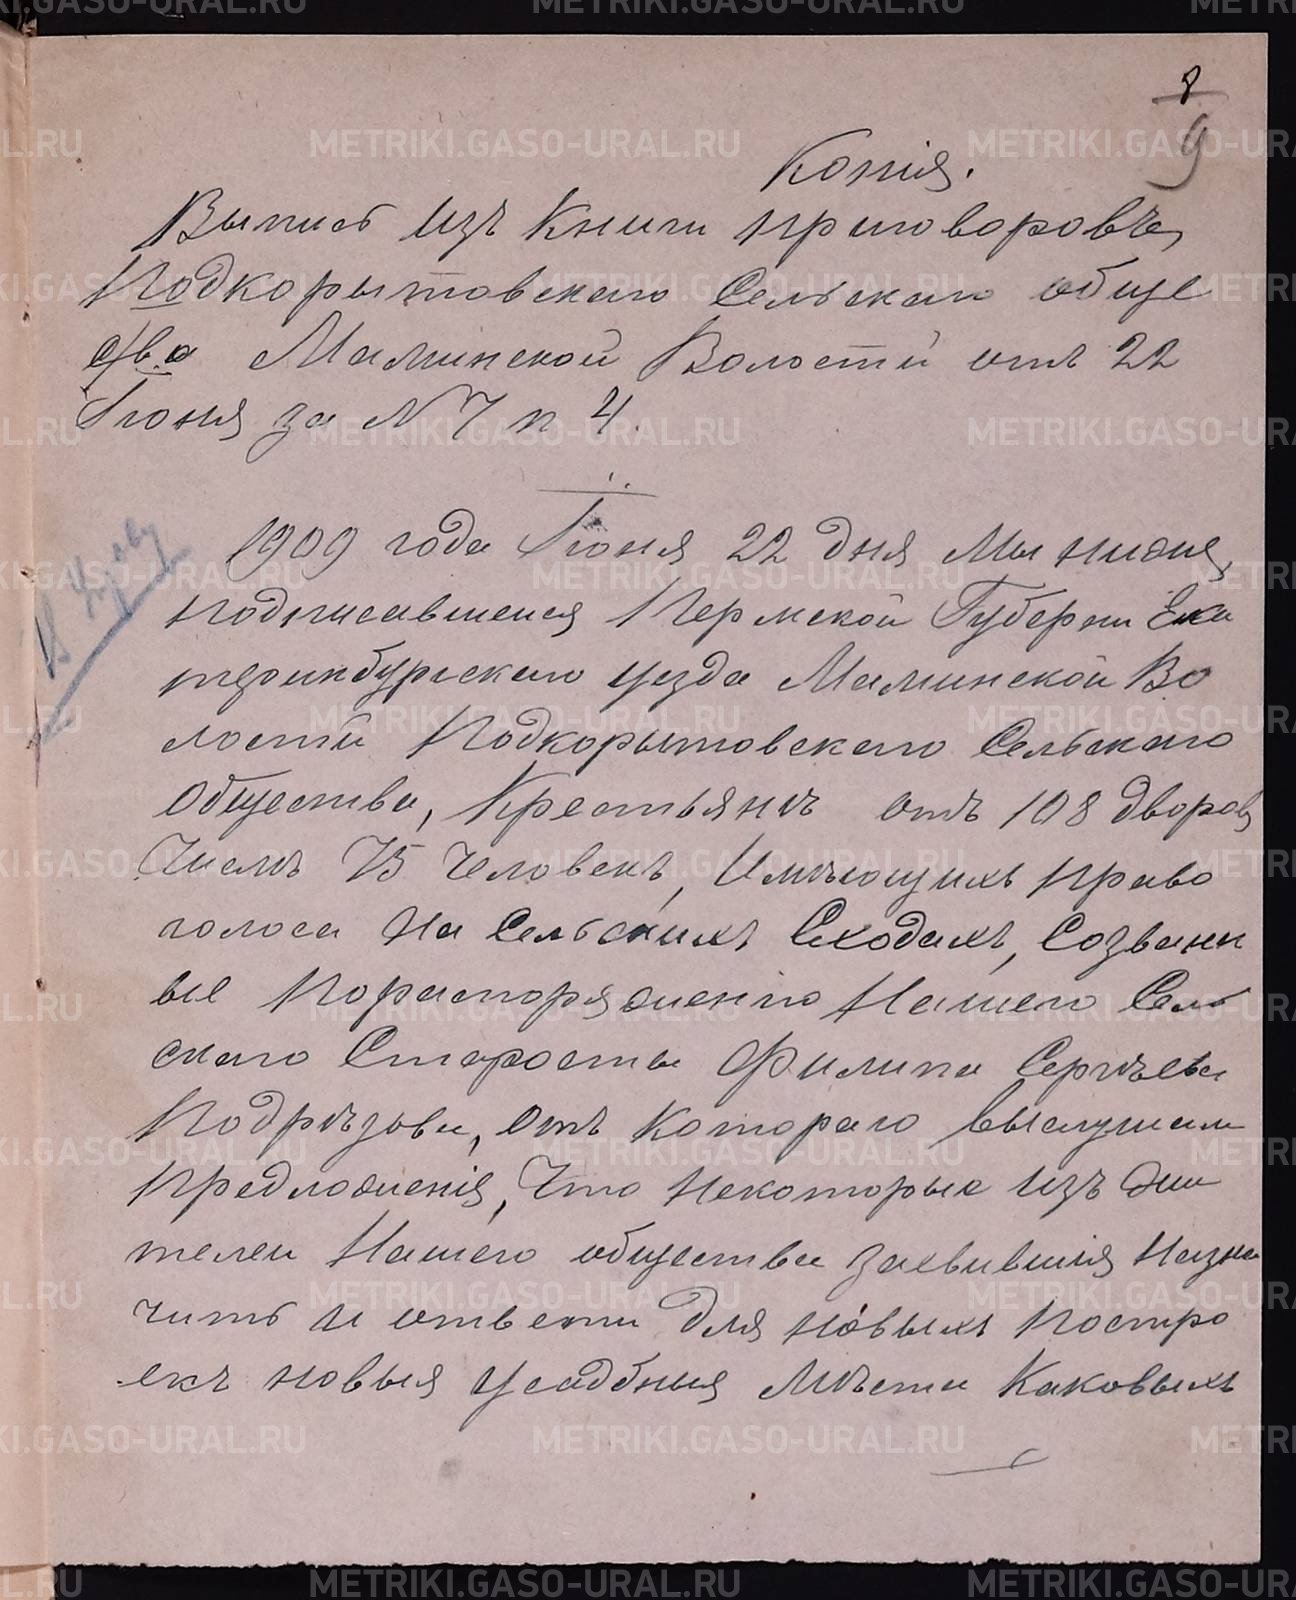 8
9
Копія.
Выпись изъ Книги приговоровъ
Подкорытовскаго Сельскаго обще
ства Маминской Волости отъ 22
Іюня за N 7 п 4.
1909 года Іюня 22 дня Мы нижея
подписавшеися Пермской Губерни Ека
теринбургскаго уезда Маминской Во
лости Подкорытовскаго Сельскаго
Общества, Крестьянъ отъ 108 дворов
Числъ 75 Человекъ, Имѣющихъ право
голоса На Сельскихъ Сходахъ, Созванн
ые Пораспоряженію Нашего Сель
скаго Старосты Филипа Сергѣева
Подрѣзова, Отъ Котораго выслушали
предложенія, Что Некоторые изъ Жи
телеи Нашего общества заевившія Назна
чить и ответи для новыхъ постро
екъ новыя усадбныя Мѣста Каковыхъ